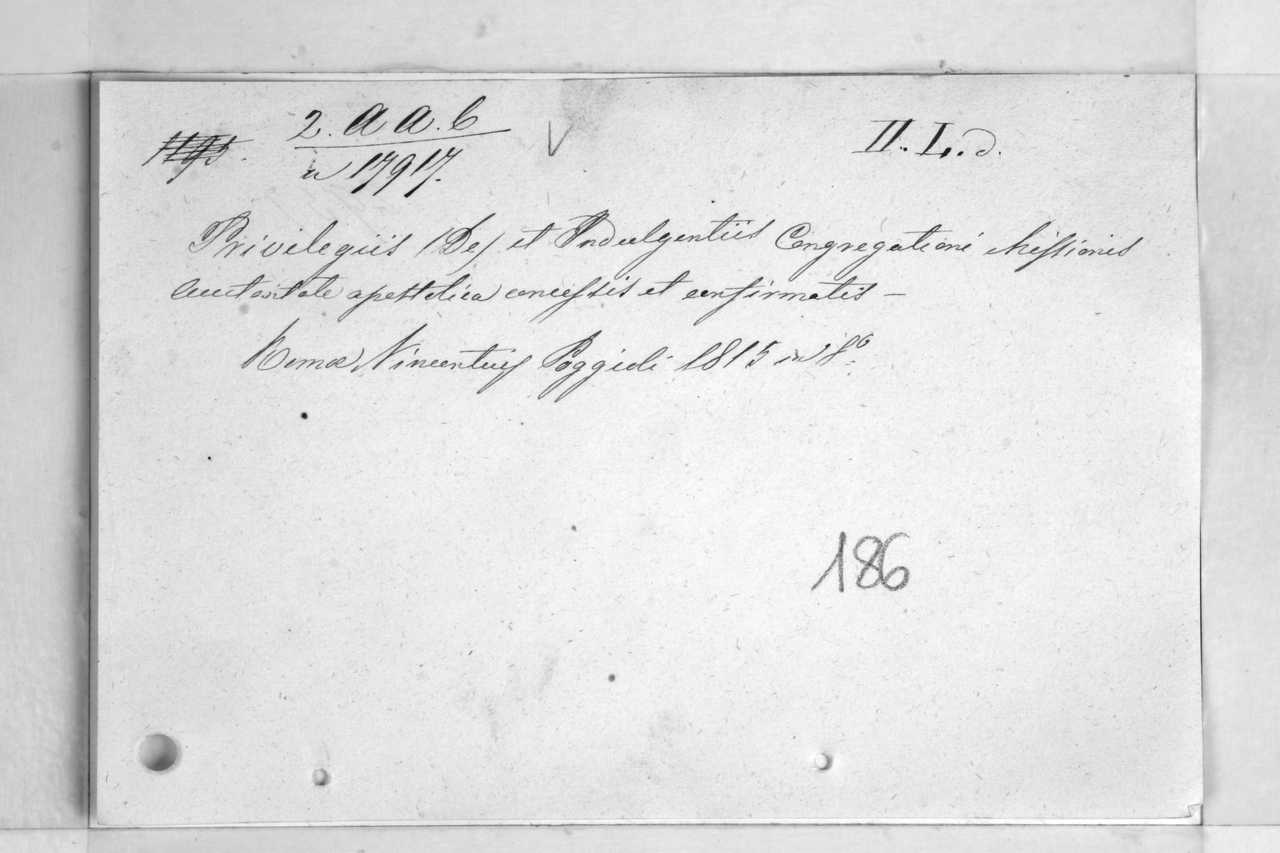 2. a a. b
a 17917.
II. L. d.
Privilegiis (De) et Indulgentiis Congregationi Missionis
Auctoritate apostolica concessis et confirmatis —
Romæ Vincentius Poggioli 1815 in 8º.
186